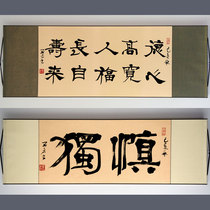 德高人長壽
心寬福自來
慎獨